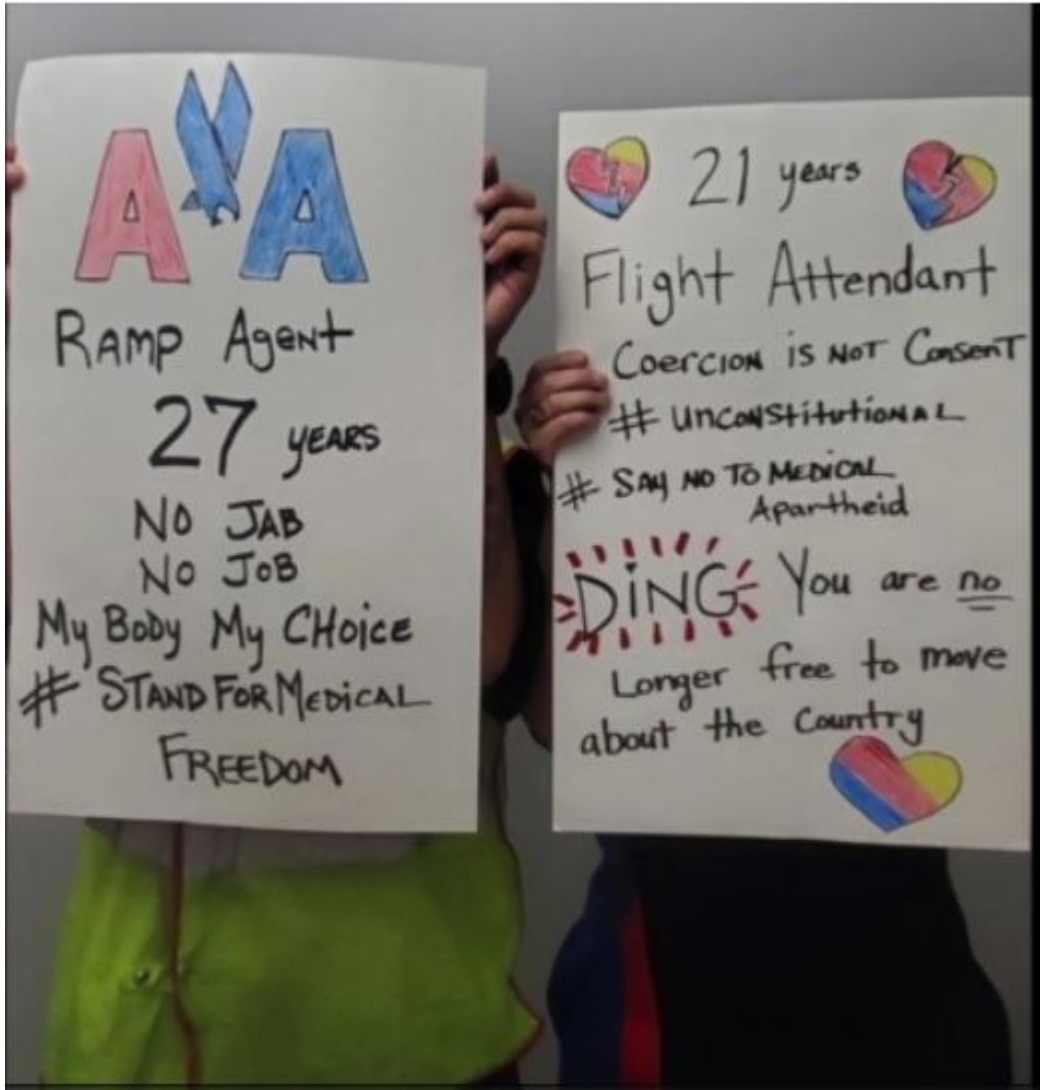 AA
RAMP AgeNt
27 YEARS
NO JAB
NO JOB
My BoDy My CHoice
# STAND FOR MEDICAL
FREEDOM
21 years
Flight Attendant
Coercion is NOT ConsenT
# UNCONStitutioNAL
# SAY NO TO MEDICAL
Apartheid
DiNG You are no
Longer free to move
about the Country